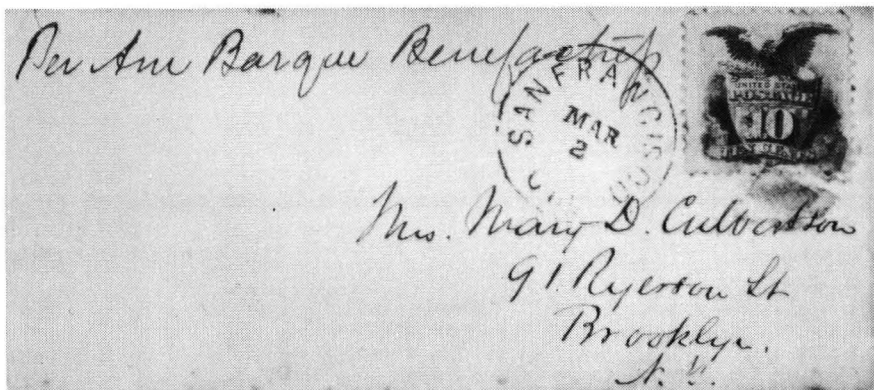 Per Am Barque Benefactress
SAN FRANCISCO
MAR
2
UNITED STATES
POSTAGE
10
TEN CENTS
Mrs. Mary D. Culbertson
91 Ryerson St
Brooklyn.
N.Y.